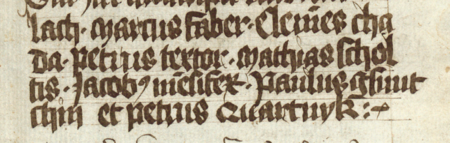 lach · marcus faber · Clemēs cha
da · petrus textor · mathias schol
tis · Jacobꝰ mēsifex · Paulus
chin et petrus Quartnyk :~